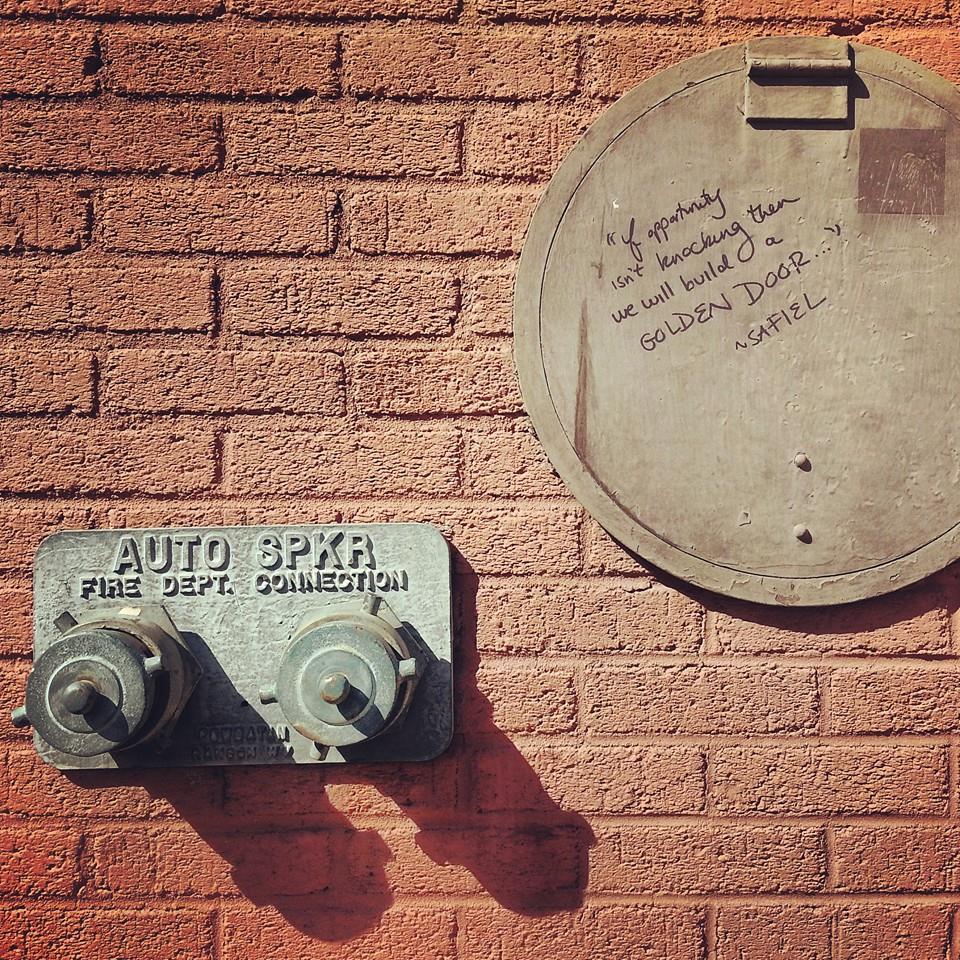 "if opportunity
isn't knocking then
we will build a
GOLDEN DOOR..."
~SAFIEL
AUTO SPKR
FIRE DEPT. CONNECTION